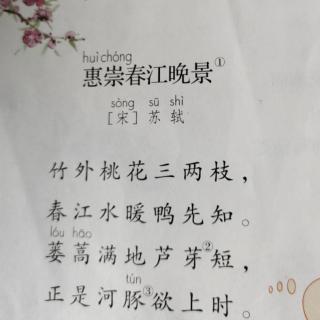 huì chóng
惠崇春江晚景①
sòng sū shì
［宋］苏轼
竹外桃花三两枝，
春江水暖鸭先知。
lóu hāo
蒌蒿满地芦芽②短，
tún
正是河豚③欲上时。